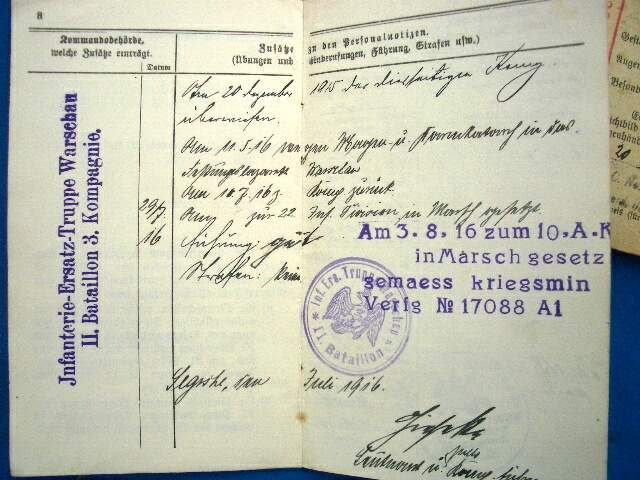 8
Kommandobehörde,
welche Zusätze einträgt.
Datum
Zusätze zu den Personalnotizen.
(Übungen und Einberufungen, Führung, Strafen usw.)
Infanterie-Ersatz-Truppe Warschau
II, Bataillon 3. Kompagnie.
Am 20 Dezember 1915 der diesseitigen Komp.
überwiesen.
Am 11.5.16 wegen Magen- u. Darmkatarrh in das
Festungslazarett Warschau
Am 10.7.16 z. Komp zurück.
29/7 zur 22. Inf. Division in Marsch gesetzt
16 Führung: gut
Strafen: keine
Am 3. 8, 16 zum 10, A.K
in Marsch gesetz
gemaess kriegsmin
Verfg № 17088 A1
Inf. Ers. Truppe Warschau
II. Bataillon
Segrshe, den Juli 1916.
Leutnant u. Komp.
Gest
Augen
Besond
20